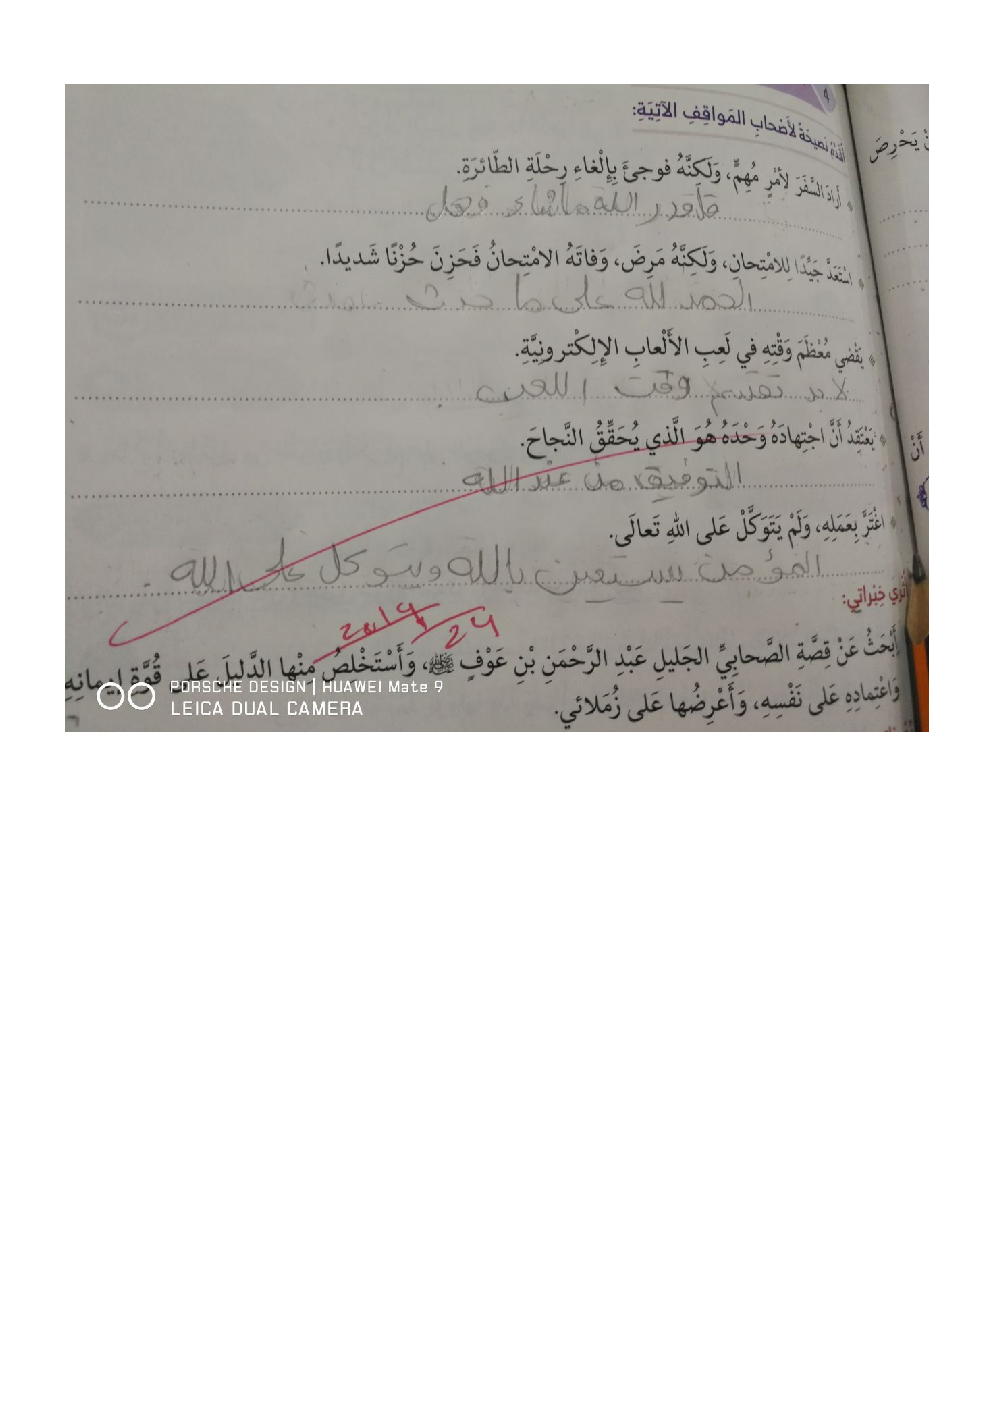 4
أُقَدِّمُ نَصيحَةً لِأَصْحابِ المَواقِفِ الآتِيَةِ:
أَرادَ السَّفَرَ لِأَمْرٍ مُهِمٍّ، وَلَكِنَّهُ فوجِئَ بِإِلْغاءِ رِحْلَةِ الطّائرَةِ.
قدر الله ما شاء فعل
اسْتَعَدَّ جَيِّدًا لِلامْتِحانِ، وَلَكِنَّهُ مَرِضَ، وَفاتَهُ الامْتِحانُ فَحَزِنَ حُزْنًا شَديدًا.
الحمد لله على ما حدث
يَقْضي مُعْظَمَ وَقْتِهِ في لَعِبِ الأَلْعابِ الإِلِكْترونِيَّةِ.
لا بد تقسم وقت اللعب.
يَعْتَقِدُ أَنَّ اجْتِهادَهُ وَحْدَهُ هُوَ الَّذي يُحَقِّقُ النَّجاحَ.
التوفيق من عند الله
اغْتَرَّ بِعَمَلِهِ، وَلَمْ يَتَوَكَّلْ عَلى اللهِ تَعالَى.
المؤمن يستعين بالله ويتوكل على الله.
أُثْري خِبْراتي:
2019
24
أَبْحَثُ عَنْ قِصَّةِ الصَّحابِيِّ الجَليلِ عَبْدِ الرَّحْمَنِ بْنِ عَوْفٍ ، وَأَسْتَخْلِصُ مِنْها الدَّليلَ عَلى قُوَّةِ إيمانِهِ
وَاعْتِمادِهِ عَلى نَفْسِهِ، وَأَعْرِضُها عَلى زُمَلائي.
يَحْرِصَ
أَنْ
PORSCHE DESIGN | HUAWEI Mate 9
LEICA DUAL CAMERA